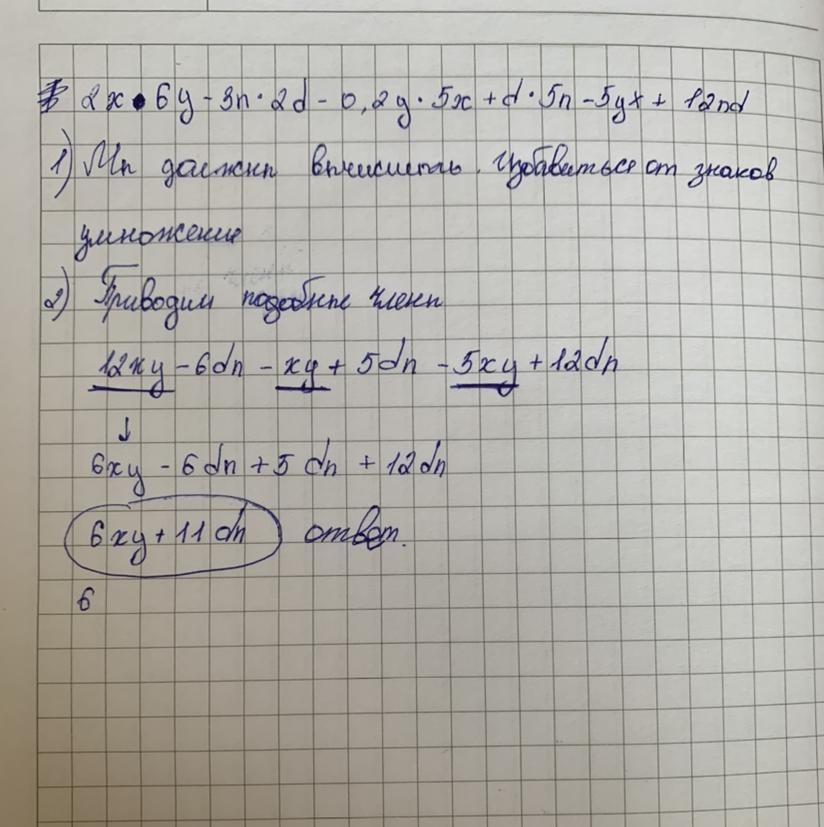 2x • 6y - 3n · 2d - 0,2y · 5x + d · 5n - 5yx + 12nd
1) Мы должны вычислить. Избавиться от знаков
умножение
2) Приводим подобные члены
12xy - 6dn - xy + 5dn - 5xy + 12dn
↓
6xy - 6dn + 5dn + 12dn
6xy + 11dn ответ.
6